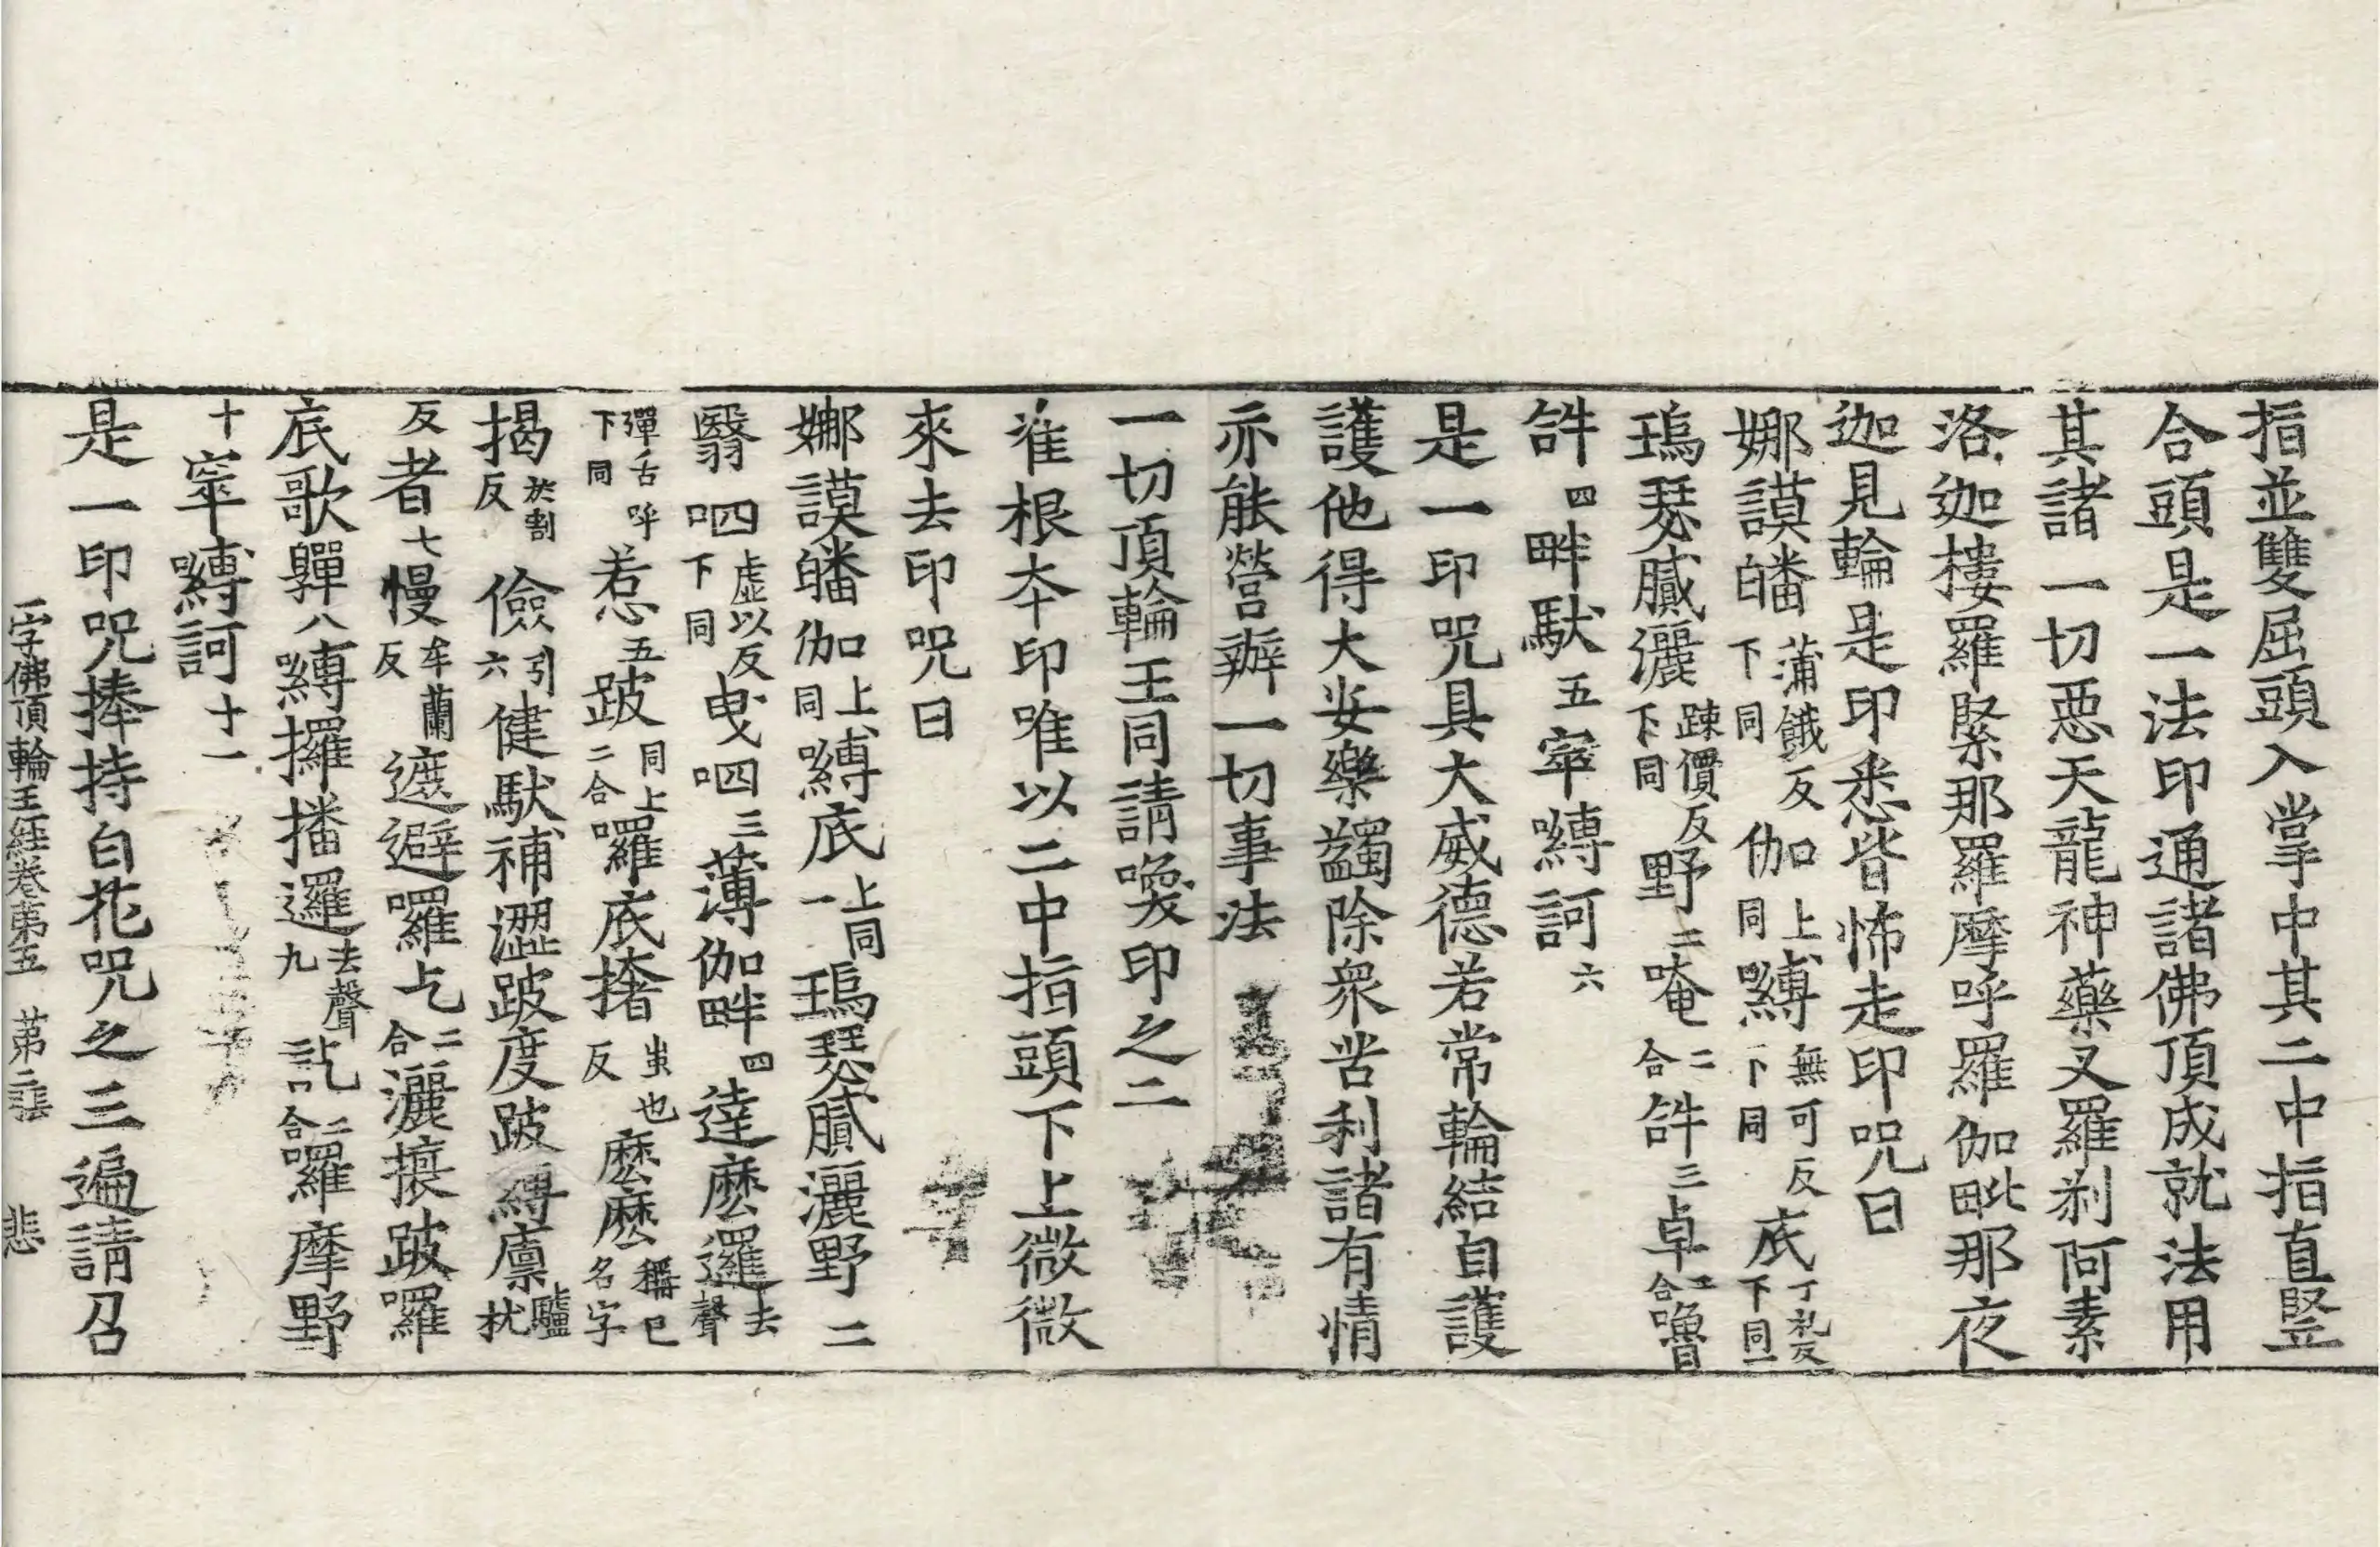 指並雙屈頭入掌中其二中指直豎
合頭是一法印通諸佛頂成就法用
其諸一切惡天龍神藥叉羅剎阿素
洛迦樓羅緊那羅摩呼羅伽毗那夜
迦見輪是印悉皆怖走印咒曰
娜謨皤蒲餓反下同伽上同嚩無可反下同底丁礼反下同一
瑀瑟膩灑疎價反下同野二唵二合㪵三卓二合嚕
㪵四畔馱五窣嚩訶六
是一印咒具大威德若常輪結自護
護他得大安樂蠲除衆苦利諸有情
亦能營辦一切事法
一切頂輪王同請喚印之二
准根本印唯以二中指頭下上微微
來去印咒曰
娜謨皤伽上同嚩底上同一瑀瑟膩灑野二
翳呬虛以反下同曳呬三薄伽畔四達麼邏去聲
彈舌呼下同惹五跛同上二合囉底撦虫也反麼麼稱己名字
揭於割反儉引六健馱補澀跛度跛縛廩驢枕
反者七慢牟蘭反遮避囉乞二合灑攘跛囉
底歌嚲八嚩攞播邏去聲九訖二合囉摩野
十窣嚩訶十一
是一印咒捧持白花咒之三遍請召
一字佛頂輪王經卷第五　第二張　悲